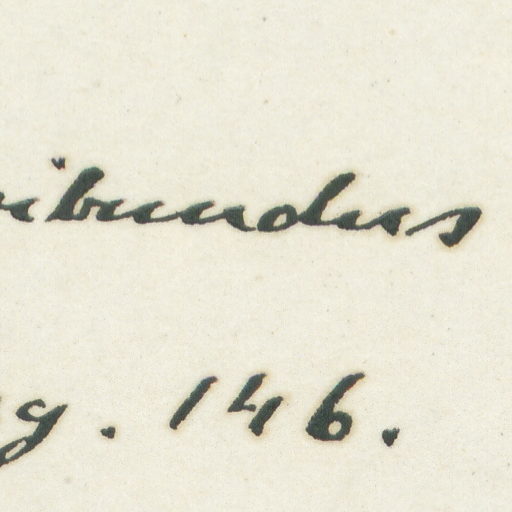 ibundus
g. 146.